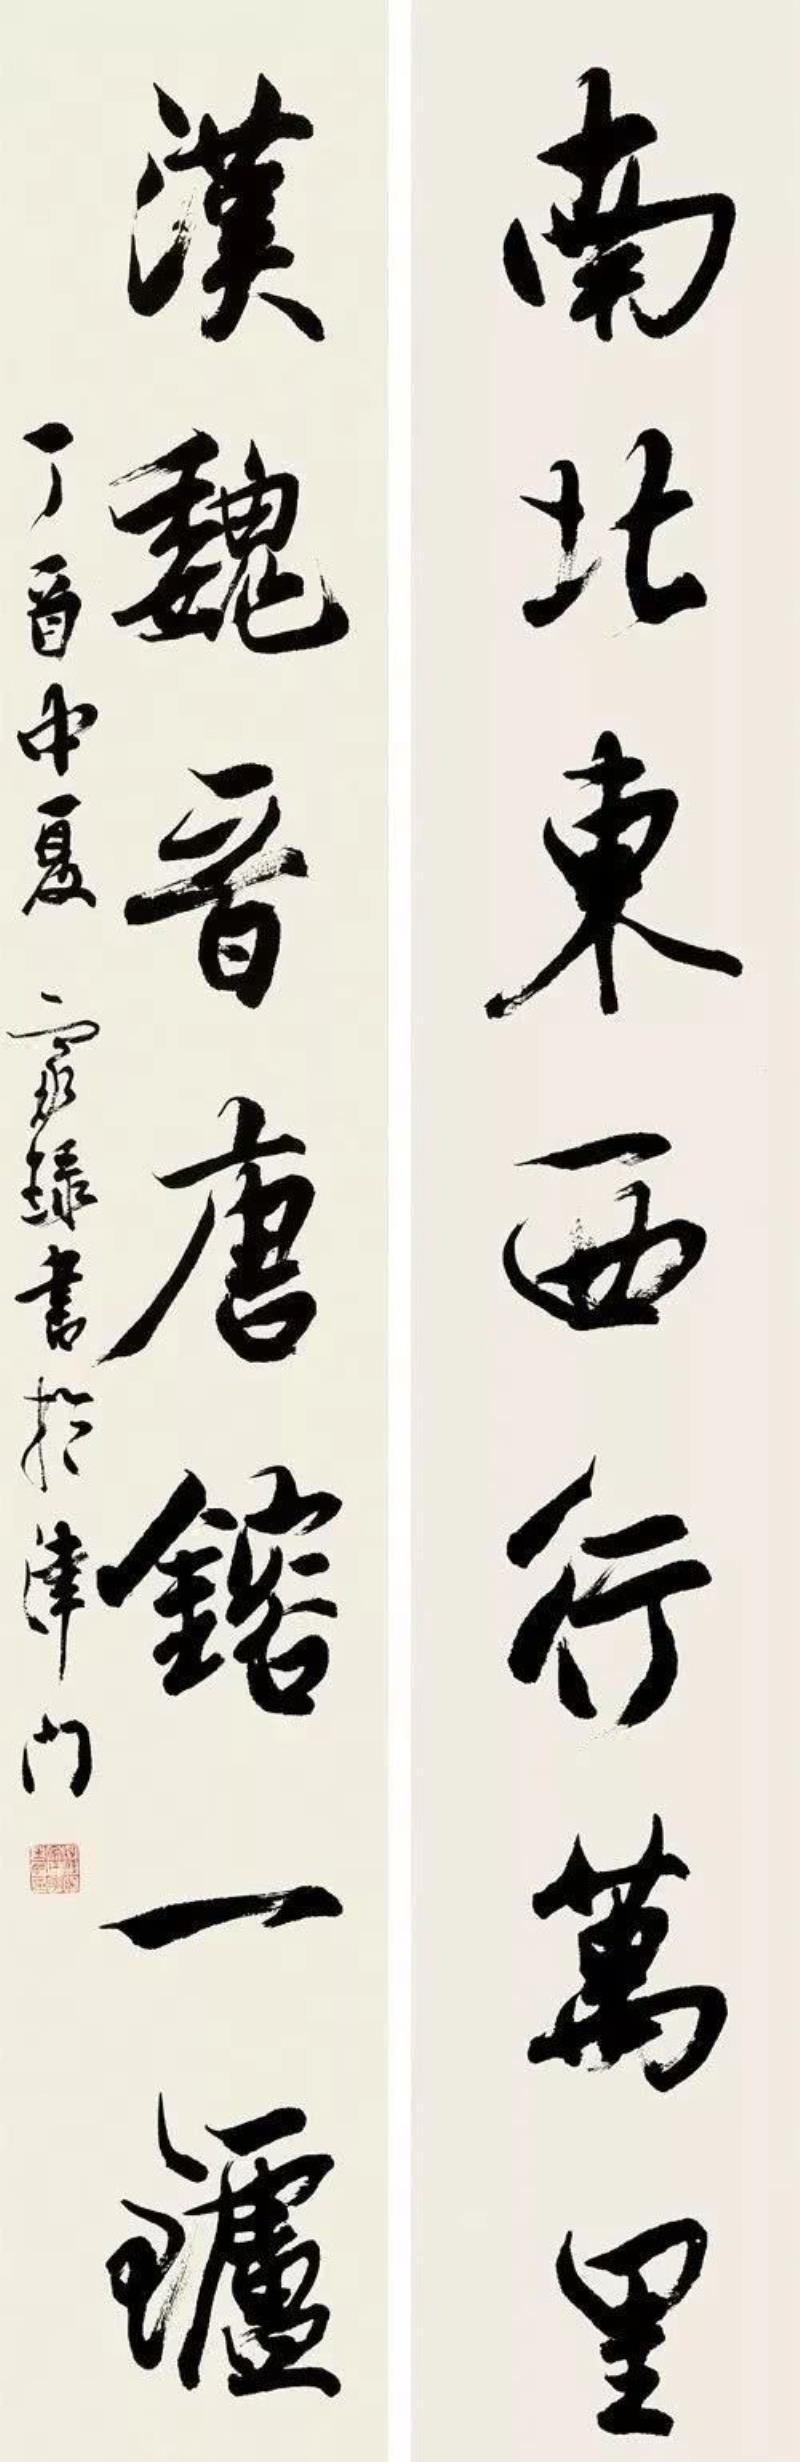 南北東西行萬里
漢魏晉唐鎔一鑪
丁酉中夏家祿書於津門